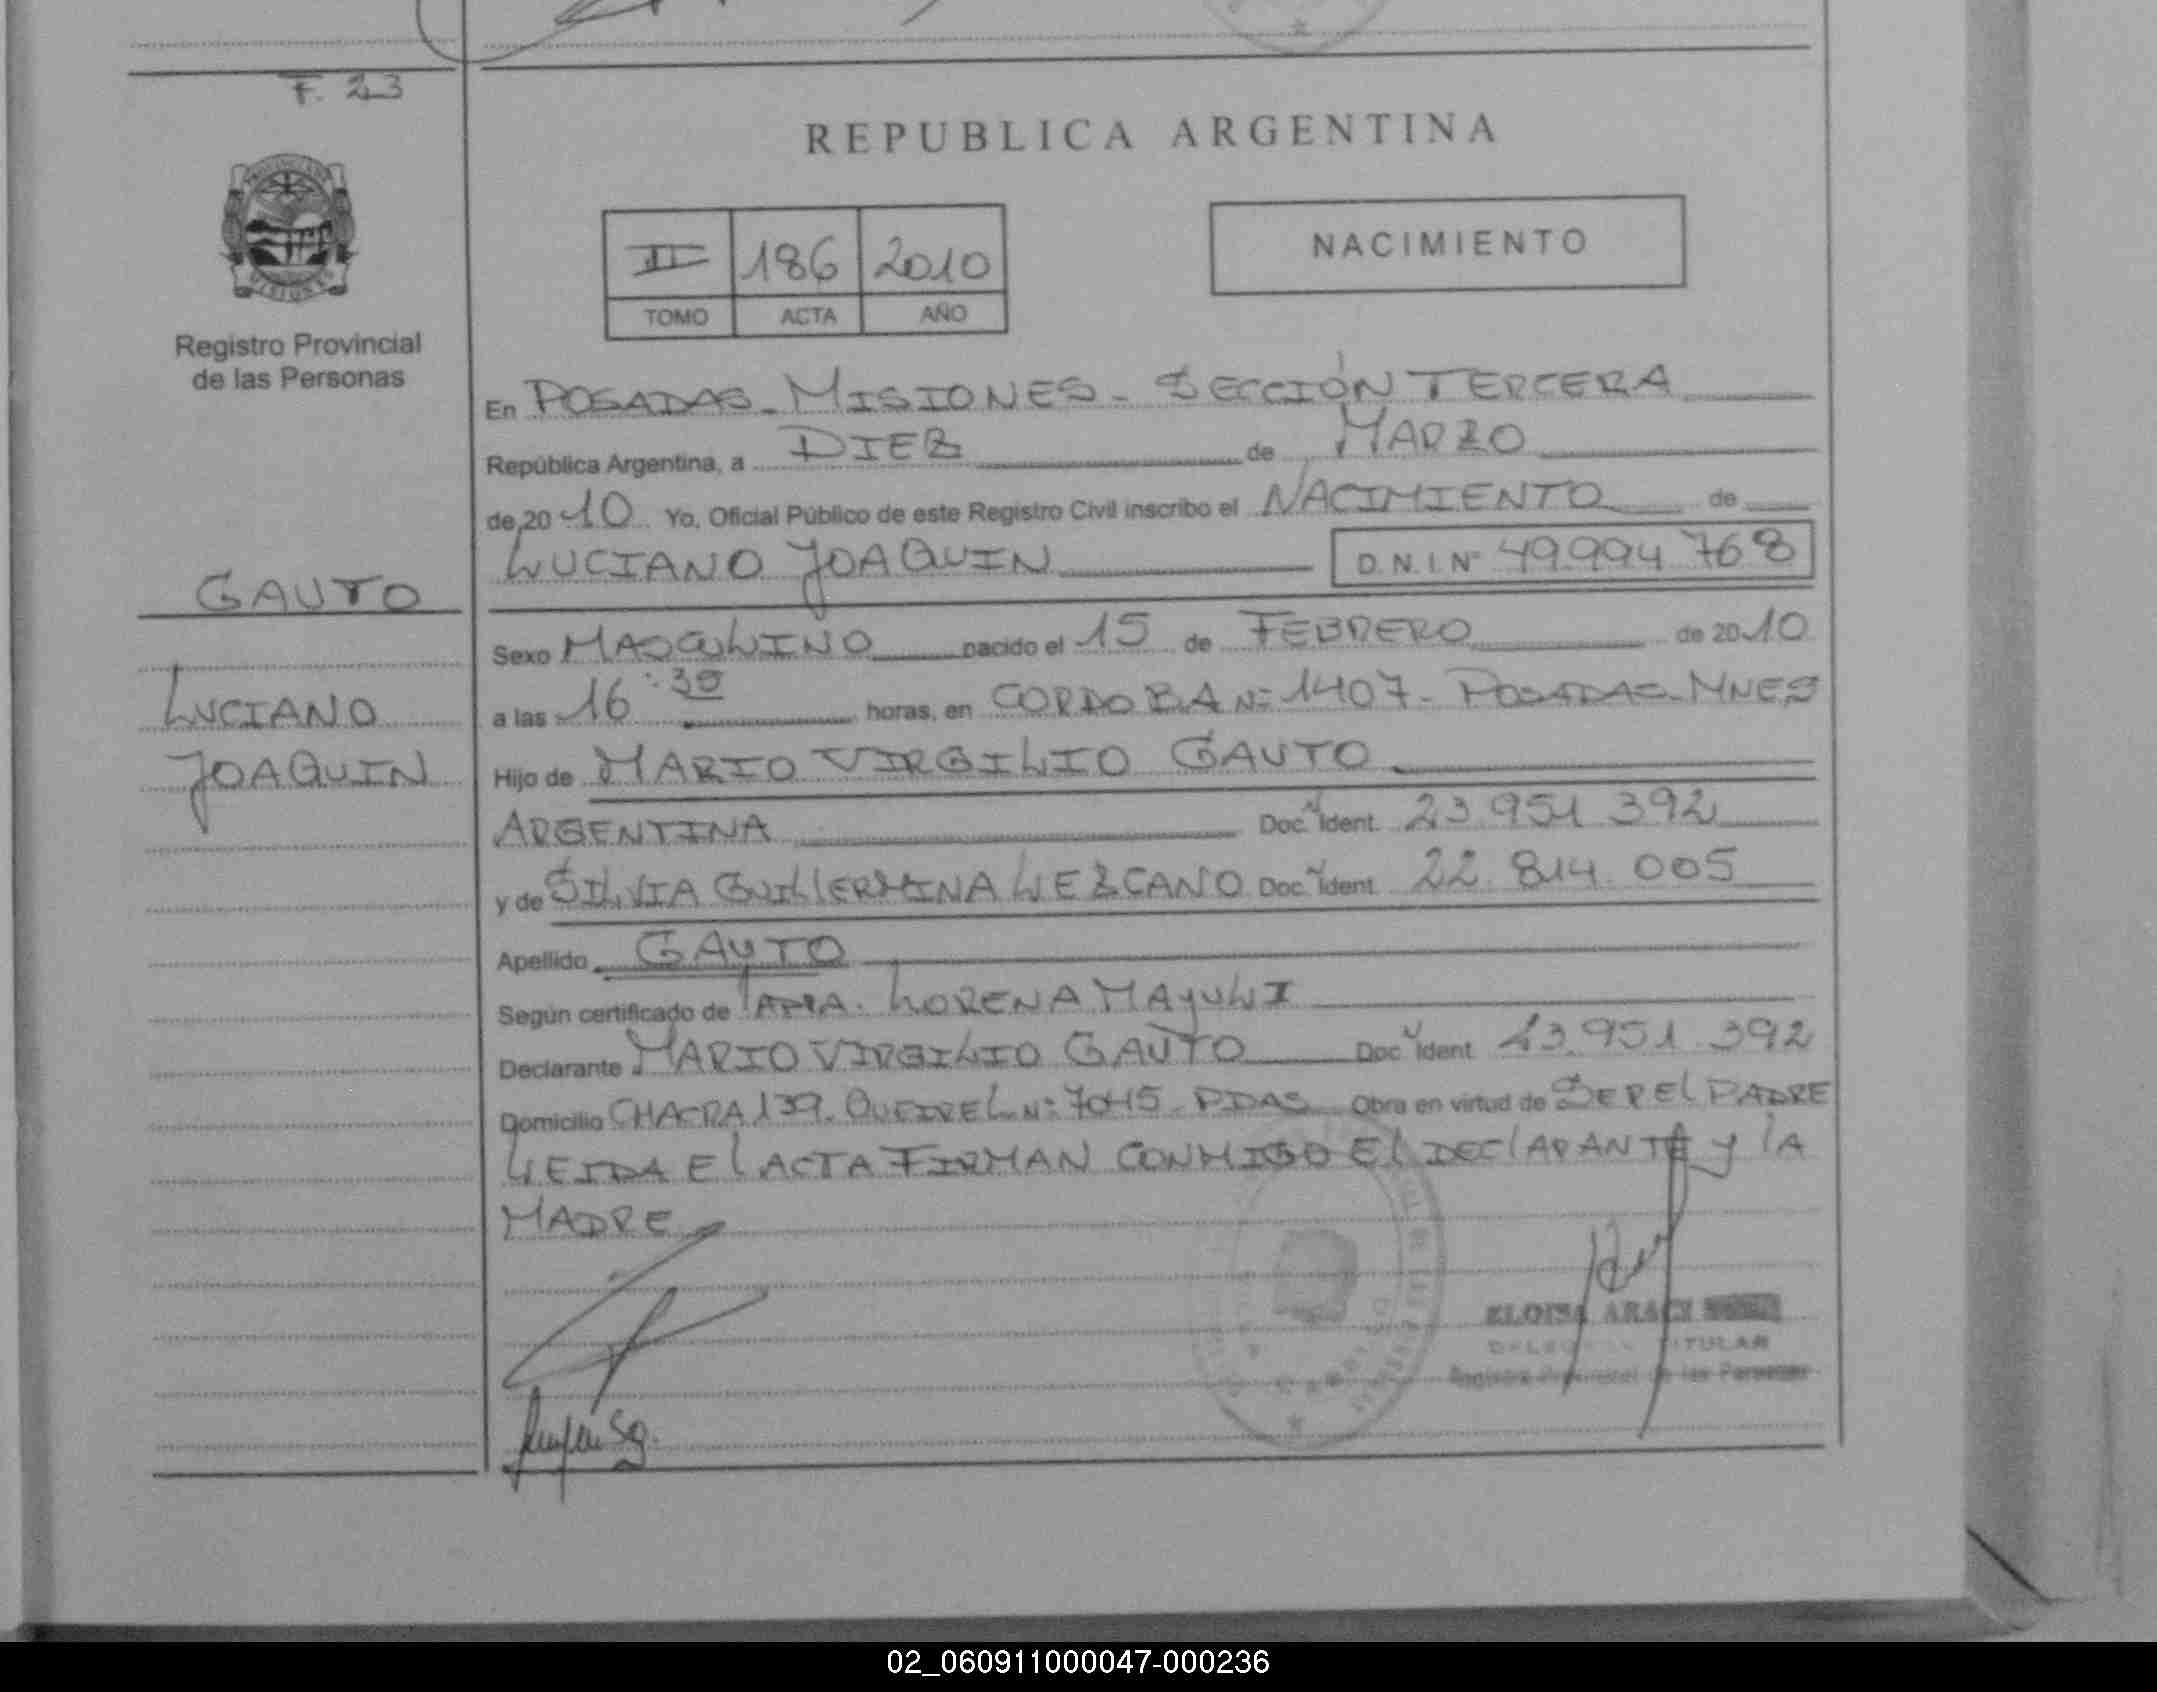 F. 23
REPUBLICA ARGENTINA
II 186 2010
TOMO ACTA AÑO
NACIMIENTO
Registro Provincial
de las Personas
En POSADAS - MISIONES - SECCIÓN TERCERA
República Argentina, a DIEZ de MARZO
de 2010 Yo, Oficial Público de este Registro Civil inscribo el NACIMIENTO de
LUCIANO JOAQUIN D.N.I. Nº 49.994.768
GAUTO
LUCIANO
JOAQUIN
Sexo MASCULINO nacido el 15 de FEBRERO de 2010
a las 16:30 horas, en CORDOBA Nº 1407 - POSADAS - MNES
Hijo de MARIO VIRGILIO GAUTO
ARGENTINA Doc. Ident. 23.951.392
y de SILVIA GUILLERMINA LEZCANO Doc. Ident. 22.814.005
Apellido GAUTO
Según certificado de LORENA MAYULI
Declarante MARIO VIRGILIO GAUTO Doc. Ident. 23.951.392
Domicilio CHACRA 139. Nº 7045 - PDAS Obra en virtud de SER EL PADRE
LEIDA EL ACTA FIRMAN CONMIGO EL DECLARANTE Y LA
MADRE
ELOISA ARACI
TITULAR
Registro Provincial de las Personas
02_060911000047-000236